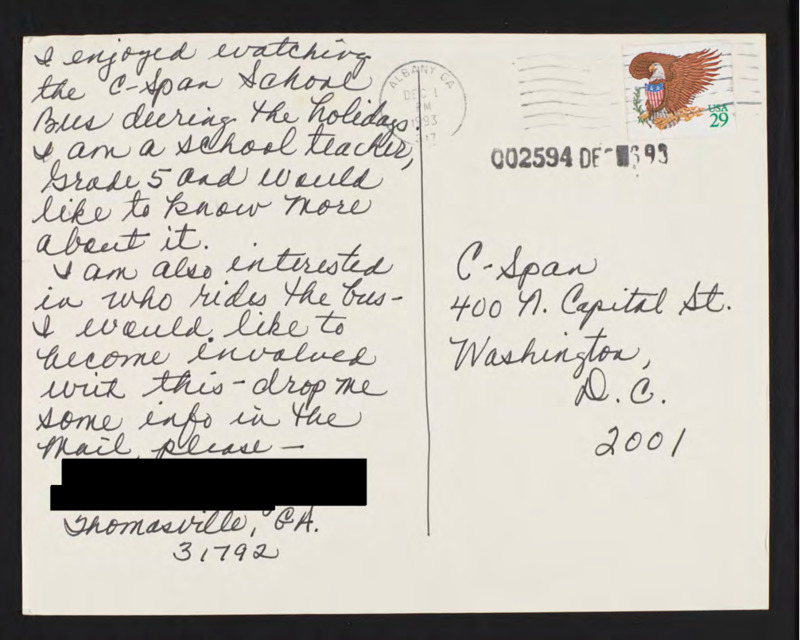 I enjoyed watching
the C-Span School
Bus during the holidays.
I am a school teacher,
Grade 5 and would
like to know more
about it.
I am also interested
in who rides the bus-
I would like to
become involved
with this - drop me
some info in the
mail, please -
Thomasville, GA.
31792
ALBANY GA
DEC 1
PM
1993
USA
29
002594 DE
93
C-Span
400 N. Capital St.
Washington,
D.C.
2001